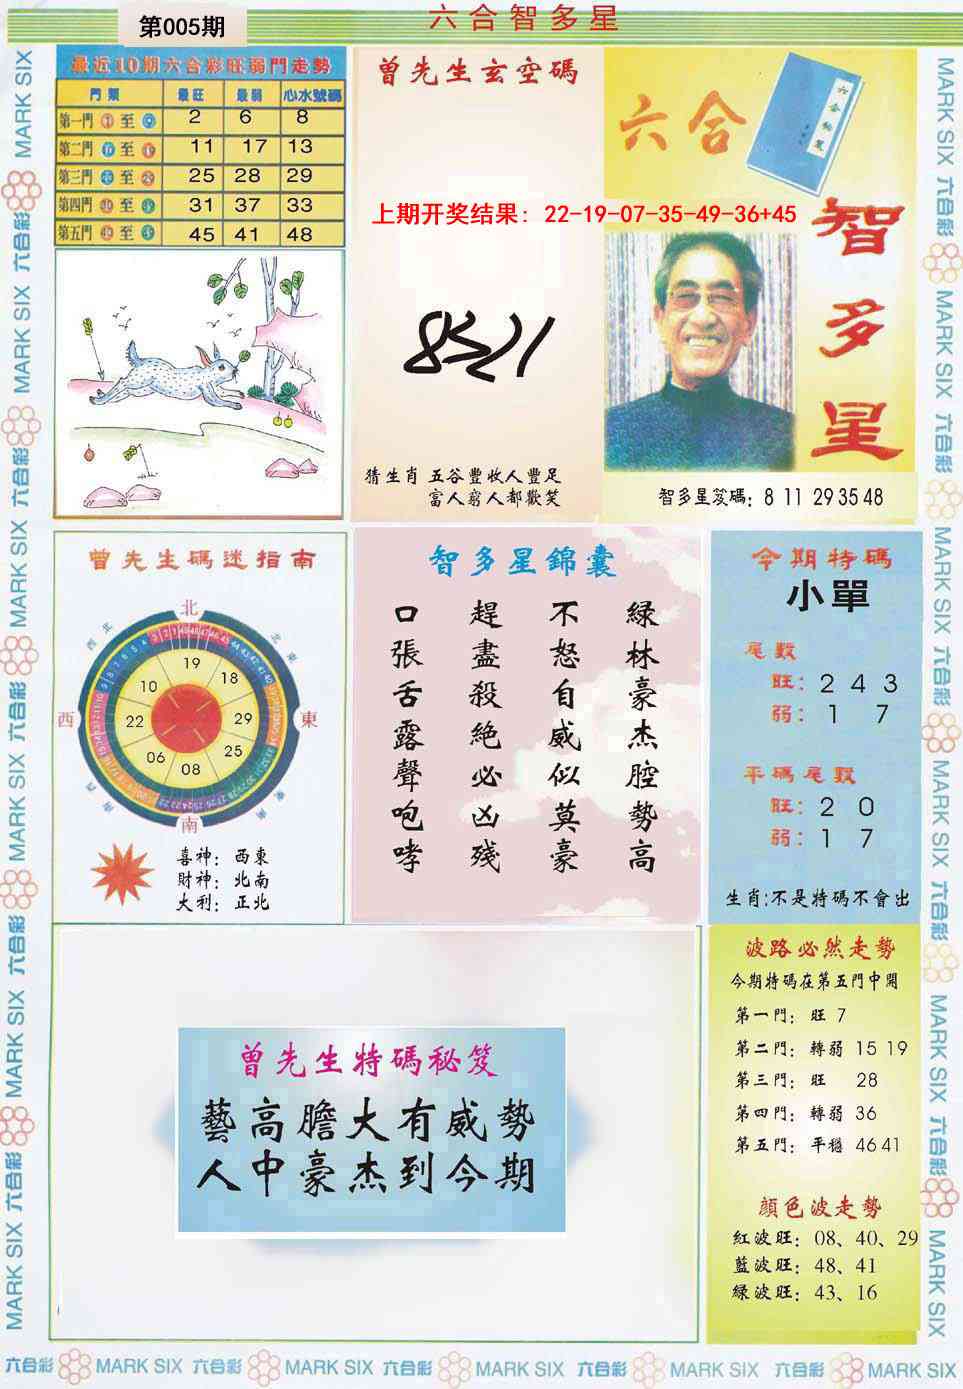 第005期
六合智多星
最近10期六合彩旺弱門走勢
門 類 最旺 最弱 心水號碼
第一門 至 2 6 8
第二門 至 11 17 13
第三門 至 25 28 29
第四門 至 31 37 33
第五門 至 45 41 48
曾先生玄空碼
六合
智多星
上期开奖结果: 22-19-07-35-49-36+45
猜生肖 五谷豐收人豐足
富人窮人都歡笑
智多星笈碼: 8 11 29 35 48
曾先生碼迷指南
北
西北
東北
19
10
18
西
22
29
東
06
25
08
南
喜神: 西東
財神: 北南
大利: 正北
智多星錦囊
綠林豪杰腔勢高
不怒自威似莫豪
趕盡殺絕必凶殘
口張舌露聲咆哮
今期特碼
小單
尾數
旺: 2 4 3
弱: 1 7
平碼尾數
旺: 2 0
弱: 1 7
生肖:不是特碼不會出
曾先生特碼秘笈
藝高膽大有威勢
人中豪杰到今期
波路必然走勢
今期特碼在第五門中開
第一門: 旺 7
第二門: 轉弱 15 19
第三門: 旺 28
第四門: 轉弱 36
第五門: 平穩 46 41
顏色波走勢
紅波旺: 08、40、29
藍波旺: 48、41
綠波旺: 43、16
六合彩 MARK SIX 六合彩 MARK SIX 六合彩 MARK SIX 六合彩 MARK SIX